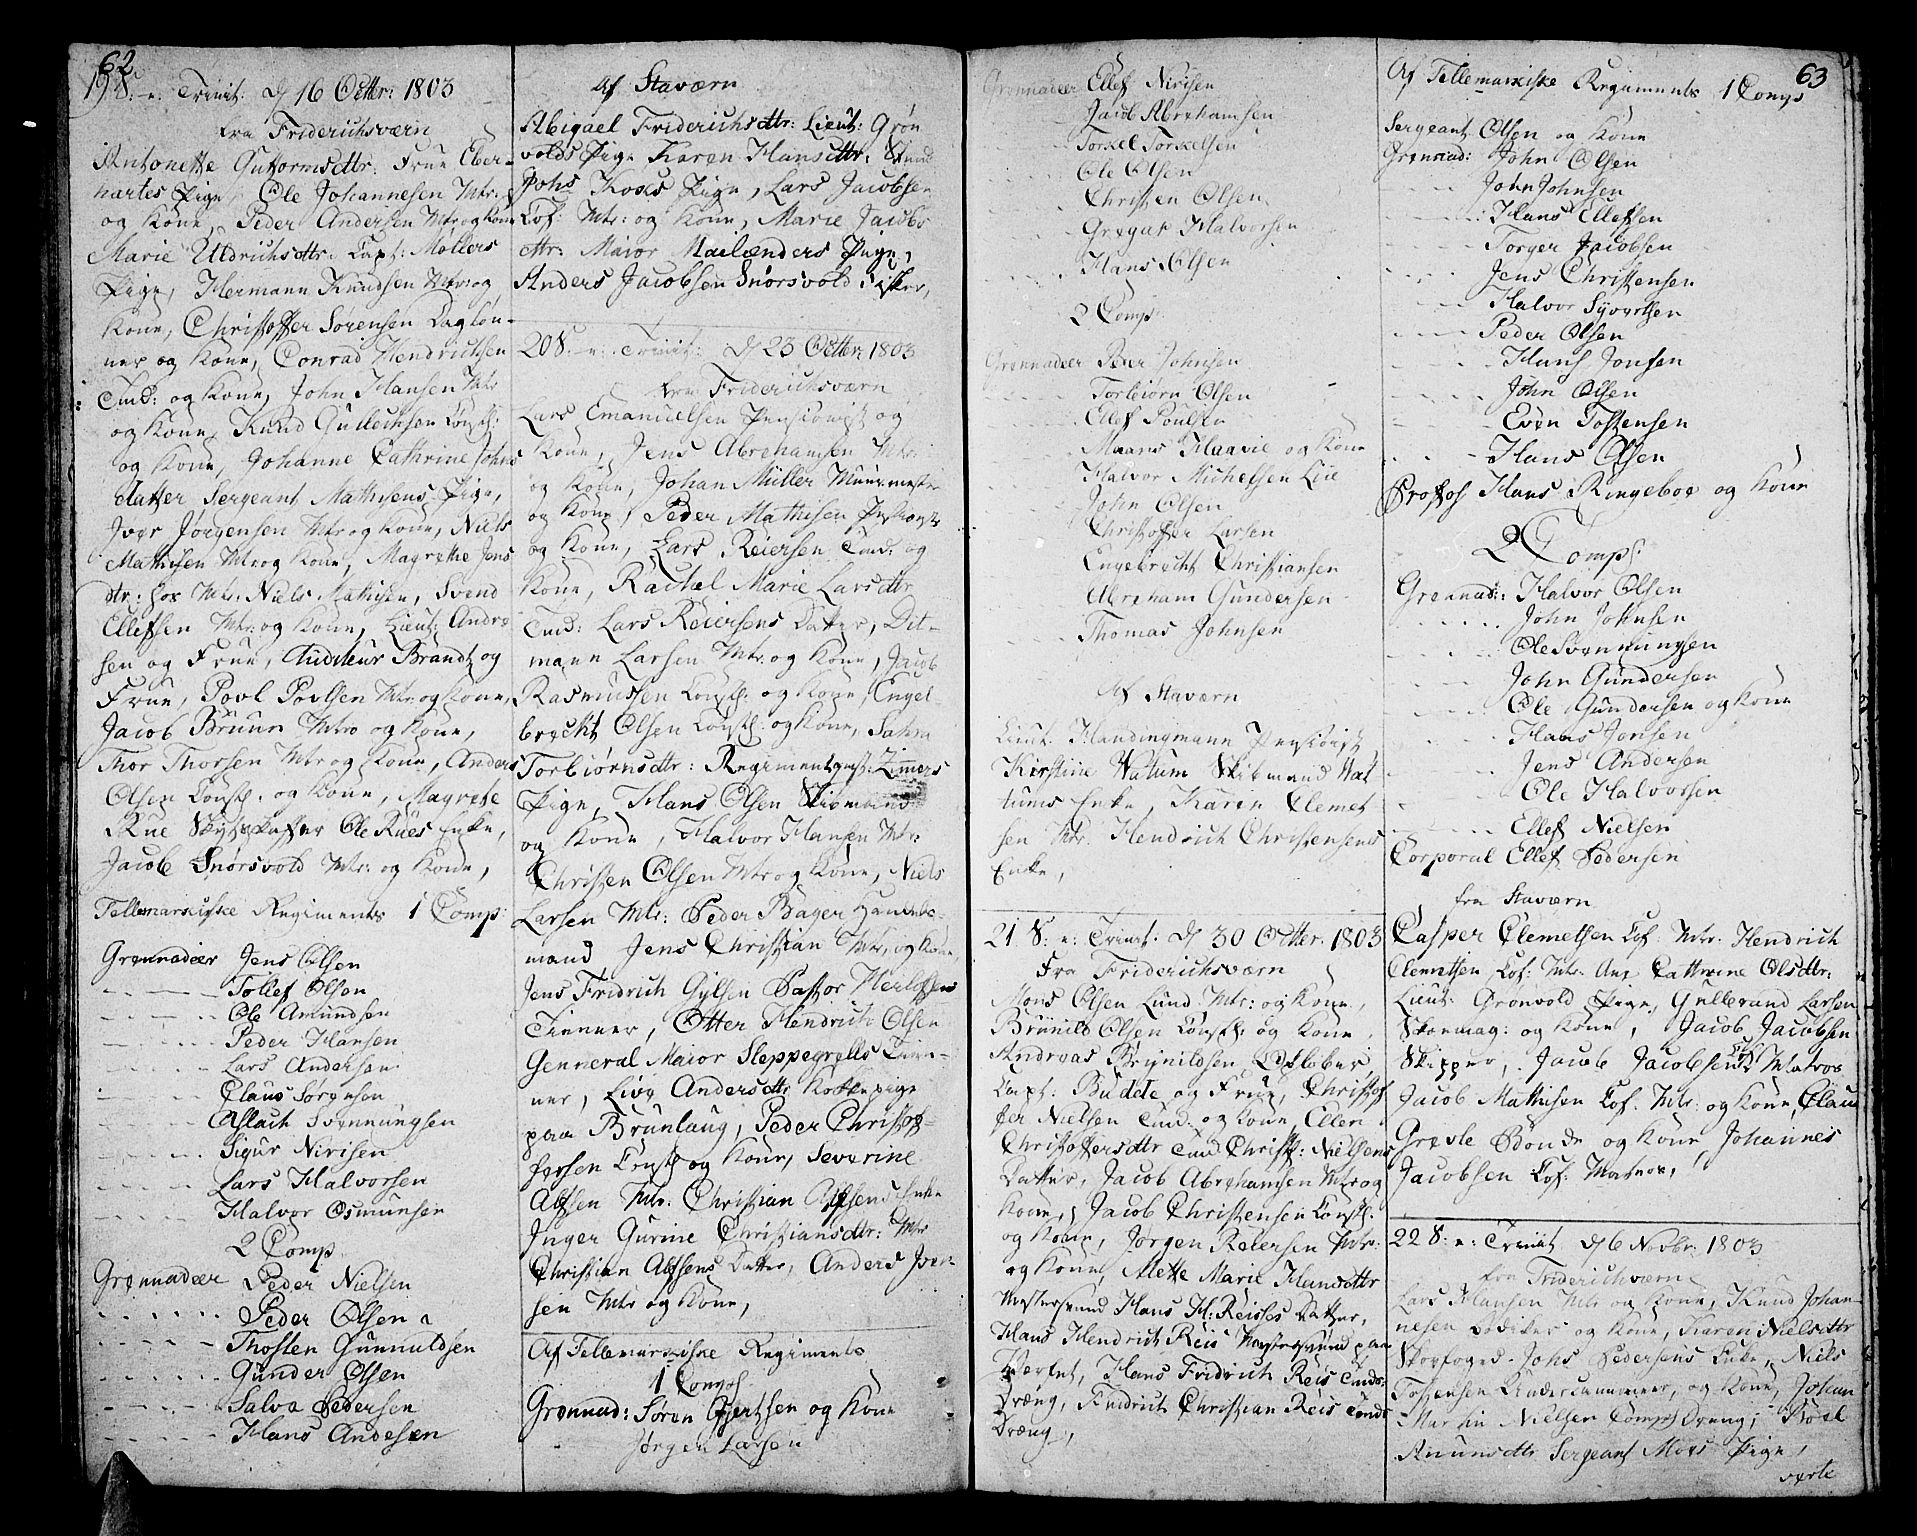 62
19 S: e: Trinit: d 16 Octbr: 1803
fra Friderichsværn
Antonette Gutormsdttr: Frue Eber-
hartes Pige, Ole Johannesen Mtr:
og Kone, Peder Andersen Mtr og Kone
Marie Uldrichsdttr: Capt: Møllers
Pige, Hermann Knudsen Mtr og
Kone, Christoffer Sørensen Dagløn-
ner og Kone, Conrad Hendrichsen
Tmd: og Kone, John Hansen Mtr
og Kone, Knud Gulleichsen Const:
og Kone, Johanne Cathrine Johns
datter Sergeant Mathisens Pige,
Iver Jørgensen Mtr og Kone, Niels
Mathisen Mtr og Kone, Magrethe Jens
dtr: hos Mtr: Niels Mathisen, Svend
Ellefsen Mtr: og Kone, Lieut: Andre
sen og Frue, Auditeur Brandt og
Frue, Povl Povlsen Mtr: og Kone,
Jacob Bruun Mtro og Kone,
Thor Thorsen Mtr og Kone, Anders
Olsen Const: og Kone, Magrete
Rue Ole Rues Enke,
Jacob Snørsvold Mtr: og Kone,
Tellemarkiske Regiments 1 Comp:
Grønnadeer Jens Olsen
Tollef Olsen
Ole Amundsen
Peder Hansen
Lars Andersen
Claus Sørensen
Aslach Svennungsen
Sigur Nirisen
Lars Halvorsen
Halvor Osmunsen
2 Comp
Grønnadeer Peder Nielsen
Peder Olsen
Thosten Gunnuldsen
Gunder Olsen
Salva Pedersen
Hans Andesen
af Staværn
Abigael Friderichsdttr: Lieut: Grøn
volds Pige Karen Hansdttr:
Johs Koxs Pige, Lars Jacobsen
Cof: Mtr: og Kone, Marie Jacobs
dttr: Maior Mailænders Pige,
Anders Jacobsen Snørsvold Fisker,
20 S: e: Trinit: d 23 Octbr: 1803
fra Friderichsværn
Lars Emanuelsen Pensionist og
Kone, Jens Abrahamsen Mtr
og Kone, Johan Müller Muurmester
og Kone, Peder Mathisen
og Kone, Lars Reiersen Tmd: og
Kone, Rachel Marie Larsdttr
Tmd: Lars Reiersens Datter, Dit-
mann Larsen Mtr: og Kone, Jacob
Rasmussen Const: og Kone, Engel-
breckt Olsen Const: og Kone, Sahra
Torbiørnsdttr: Zimmers
Pige, Hans Olsen
og Kone, Halvor Hansen Mtr:
Christen Olsen Mtr og Kone, Niels
Larsen Mtr: Peder Bager Handels-
mand Jens Christian Mtr, og Kone,
Jens Fridrich Gylsen Pastor
Tienner, Otter Hendrich Olsen
Genneral Maior Sleppegrells Tien-
ner, Live Andersdttr Kokkepige
paa Brunlaug, Peder Christof-
fersen Const: og Kone, Severine
Alfsen Mtr. Christian Alfsens Enke
Inger Gurine Christiansdttr: Mtr
Christian Alfsens Datter, Anders Iver-
sen Mtr og Kone,
Af Tellemarkiske Regiments
1 Comps
Grønnad: Søren Giertsen og Kone
Jørgen Larsen
Grønnadeer Ellef Nirisen
Jacob Abrahamsen
Torkel Torkelsen
Ole Olsen
Christen Olsen
Gregar Halvorsen
Hans Olsen
2 Comps:
Grønnadeer Peder Johnsen
Torbiørn Olsen
Ellef Poulsen
Maans Haavie og Kone
Halvor Michelsen Lie
John Olsen
Christoffer Larsen
Engebrecht Christiansen
Abraham Gundersen
Thomas Johnsen
Af Staværn
Lieut. Handingmann Pensionist
Kirstine Watum Wat
tums Enke, Karen Clemet
sen Mtr. Hendrich Christensens
Enke,
21 S: e: Trinit: d 30 Octbr: 1803
Fra Friderichsværn
Mons Olsen Lund Mtr: og Kone,
Brünild Olsen Const: og Kone
Andreas Brynildsen,
Capt: Budde og Frue, Christof
fer Nielsen Tmd: og Kone Ellen
Christoffersdttr Tmd Christf: Nielsens
Datter, Jacob Abrahamsen Mtr og
Kone, Jacob Christensen Const:
og Kone, Jørgen Reiersen Mtr:
og Kone, Alette Marie Hansdttr
Mestersvend Hans H: Reises Datter,
Hans Hendrich Reis Mestersvend paa
Værfvet, Hans Fridrich Reis Tmds:
Dræng, Fridrich Christian Reis Tmds
Dræng,
63
Af Tellemarkiske Regiments 1 Comps
Sergeant Olsen og Kone
Grønnad: John Olsen
John Johnsen
Hans Ellefsen
Torger Jacobsen
Jens Christensen
Halvor Syvertsen
Peder Olsen
Hans Jonsen
John Olsen
Even Tostensen
Hans Olsen
Profos Hans Ringeboe og Kone
2 Comps:
Grønnad: Halvor Olsen
John Johnsen
Ole Svennungsen
John Gundersen
Ole Gundersen og Kone
Hans Jonsen
Jens Andersen
Ole Halvorsen
Ellef Nielsen
Corporal Ellef Pedersen
fra Staværn
Casper Clemetsen Cof: Mtr. Hendrich
Clemetsen Cof: Mtr. Ane Cathrine Olsdttr:
Lieut: Grønvold Pige, Gulbrand Larsen
Skomag: og Kone, Jacob Jacobsen
Skipper, Jacob Jacobsen Cof: Matros
Jacob Mathisen Cof. Mtr: og Kone, Claus
Grevle Bonde og Kone Johannes
Jacobsen Cof: Matros,
22 S: e: Trinit d 6 Novbr: 1803
fra Friderichsværn
Lars Hansen Mtr og Kone, Knud Johan-
nesen og Kone, Karen Nielsdttr
Skovfoged Johs Pedersens Enke, Niels
Tostensen Undercannoneer, og Kone, Johan
Martin Nielsen Comps Dreng,
Amunsdttr Sergeant Moes Pige,
verte